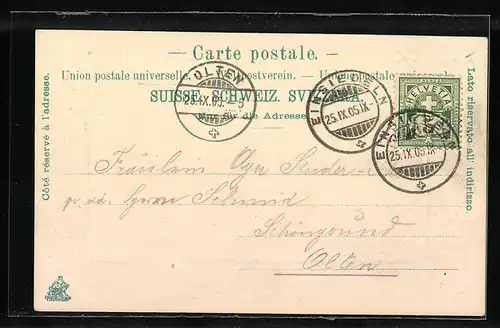 Carte postale.
Union postale universelle. — Weltpostverein. — Unione postale universale.
SUISSE. SCHWEIZ. SVIZZERA.
Nur für die Adresse.
Côté réservé à l'adresse.
Lato riservato all'indirizzo.
OLTEN
25.IX.05.
EINSIEDELN
25.IX.05.IX-
HELVETIA
EINSIEDELN
25.IX.05.IX-
Fräulein Olga Studer
p. ad. Herrn Schmid
Schöngrund
Olten